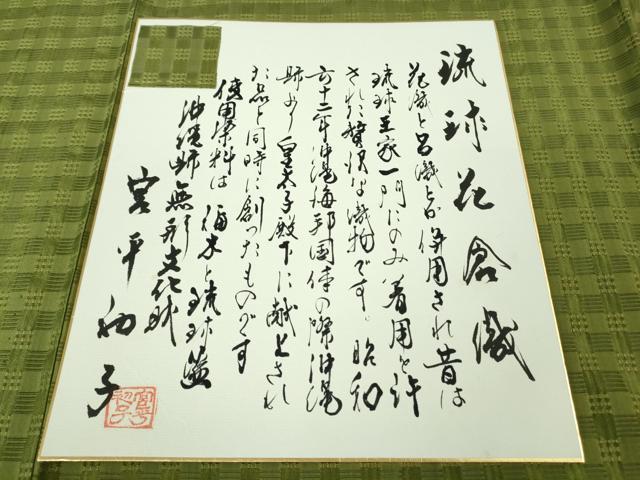 琉球花倉織
花織と呂織とが併用され昔は
琉球王家一門にのみ着用を許
された贅沢な織物です。昭和
六十二年沖縄海邦国体の際沖縄
県より皇太子殿下に献上され
た品と同時に創ったものです
使用染料は福木と琉球藍
沖縄県無形文化財
宮平初子